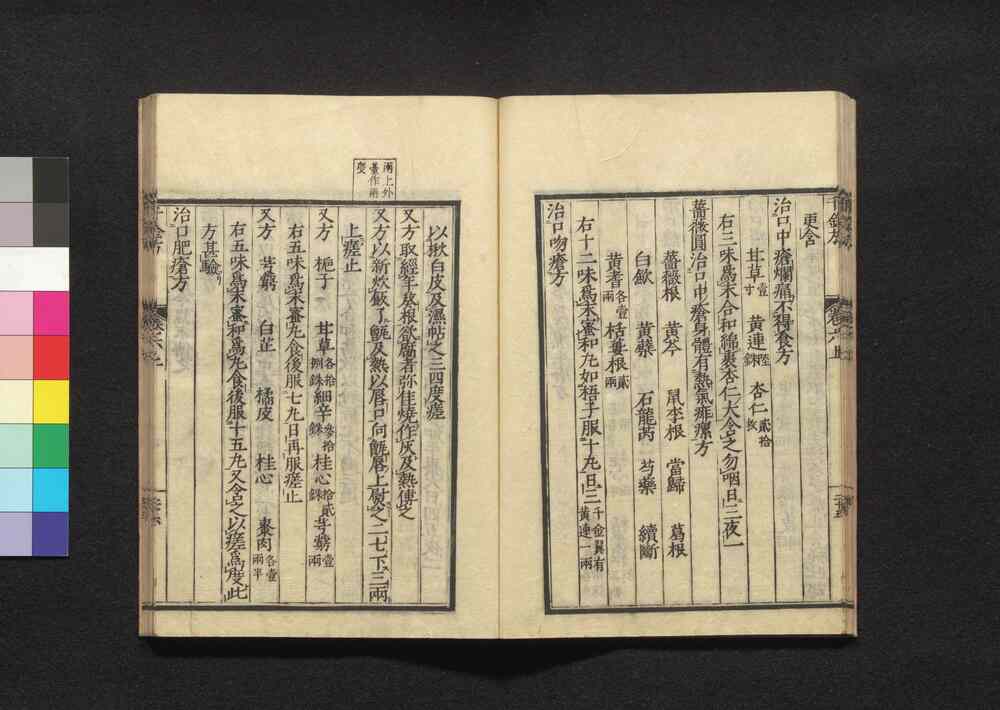 更含
治口中瘡爛痛不得食方
甘草壹寸　黄連陸銖　杏仁貳拾枚
右三味爲末合和綿裹杏仁大含之勿咽日三夜一
薔薇圓治口中瘡身體有熱氣痱瘰方
薔薇根　黄芩　鼠李根　當歸　葛根
白歛　黄蘗　石龍芮　芍藥　續斷
黄耆各壹兩　栝蔞根貳兩
右十二味爲末蜜和丸如梧子服十丸日三千金翼有黄連一兩
治口吻瘡方
兩上外臺作兩叓
以楸白皮及濕帖之三四度瘥
又方取經年葵根欲腐者弥佳燒作灰及熱傅之
又方以新炊飯了甑及熱以唇口向甑唇上熨之二七下三兩
上瘥止
又方　梔子　甘草各拾捌銖　細辛參拾銖　桂心拾貳銖　芎藭壹兩
右五味爲末蜜丸食後服七丸日再服瘥止
又方　芎藭　白芷　橘皮　桂心　棗肉各壹兩半
右五味爲末蜜和爲丸食後服十五丸又含之以瘥爲度此
方甚驗
治口肥瘡方